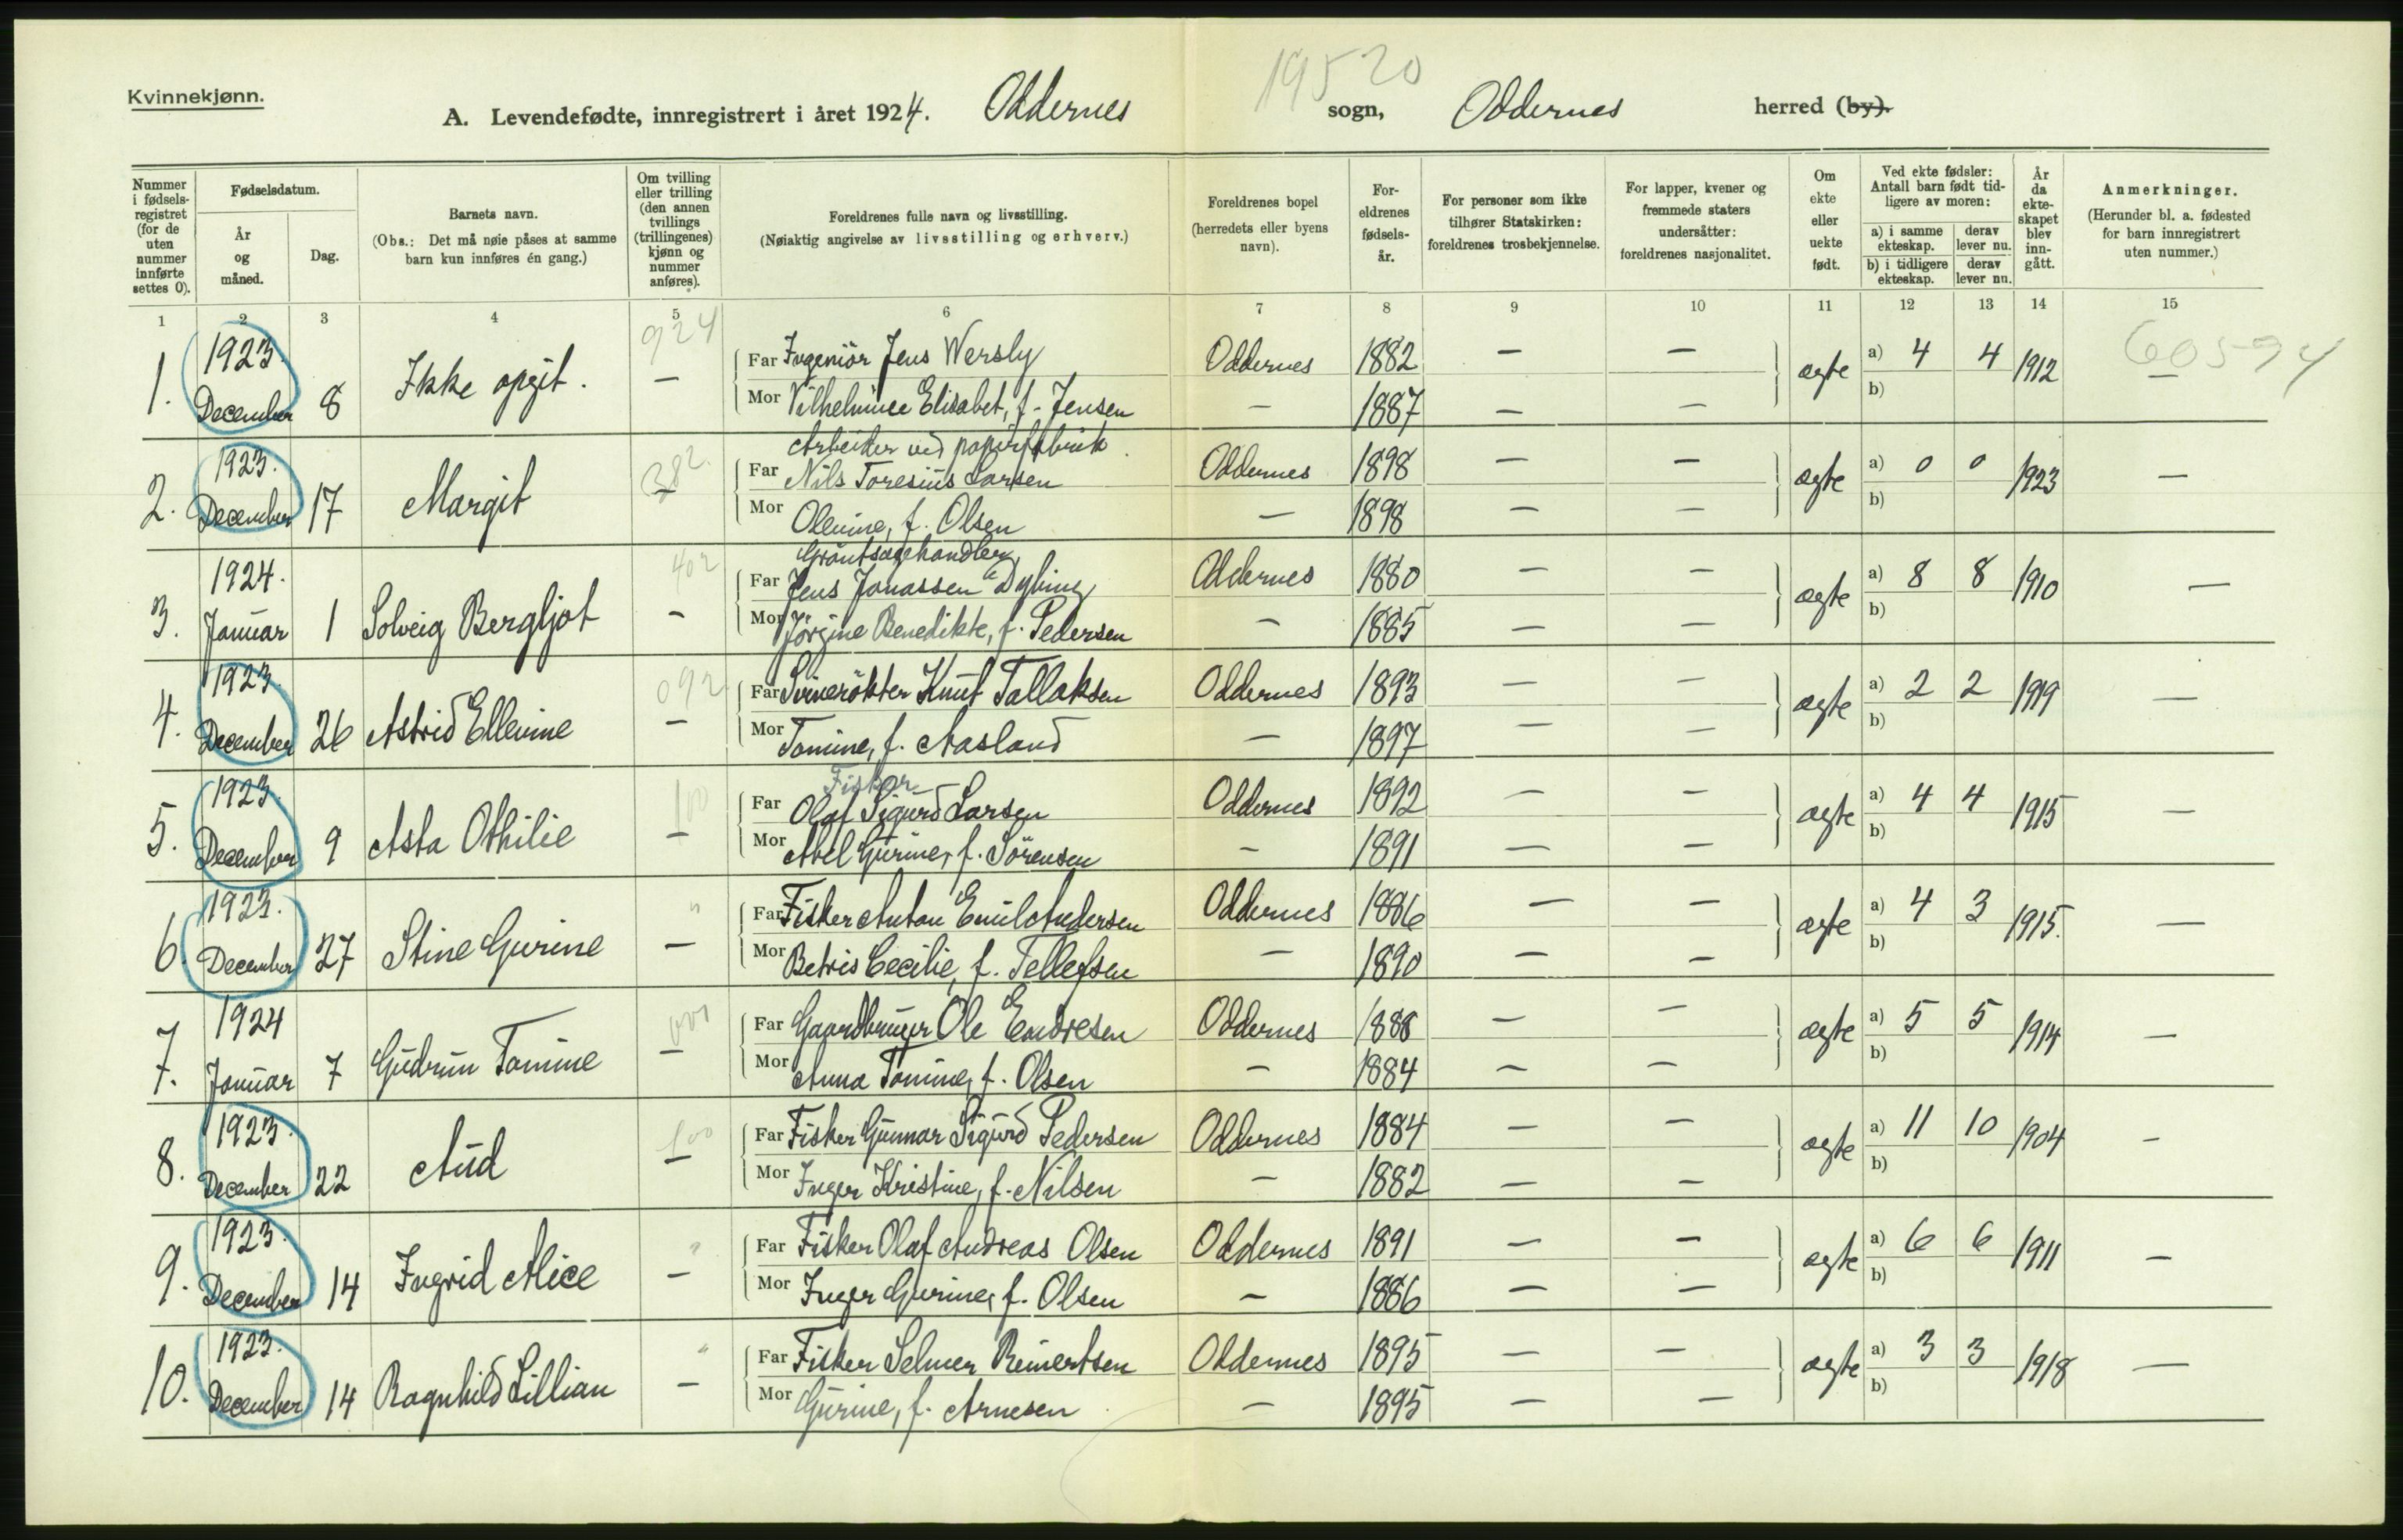 Kvinnekjønn.
19520
A. Levendefødte, innregistrert i året 1924. Oddernes sogn, Oddernes herred (by).
Nummer i fødselsregistret (for de uten nummer innførte settes 0).
Fødselsdatum.
År og måned.
Dag.
Barnets navn.
(Obs.: Det må nøie påses at samme barn kun innføres én gang.)
Om tvilling eller trilling (den annen tvillings (trillingenes) kjønn og nummer anføres).
Foreldrenes fulle navn og livsstilling.
(Nøiaktig angivelse av livsstilling og erhverv.)
Foreldrenes bopel (herredets eller byens navn).
Foreldrenes fødselsår.
For personer som ikke tilhører Statskirken: foreldrenes trosbekjennelse.
For lapper, kvener og fremmede staters undersåtter: foreldrenes nasjonalitet.
Om ekte eller uekte født.
Ved ekte fødsler: Antall barn født tidligere av moren:
a) i samme ekteskap. derav lever nu.
b) i tidligere ekteskap. derav lever nu.
År da ekteskapet blev inngått.
Anmerkninger.
(Herunder bl. a. fødested for barn innregistrert uten nummer.)
1 2 3 4 5 6 7 8 9 10 11 12 13 14 15
924
1. 1923. December 8 Ikke opgit. —
Far Ingeniör Jens Wersly Oddernes 1882 — — ægte a) 4 4 1912 — 60594
Mor Vilhelmine Elisabet, f. Jensen — 1887 — — b)
382.
Arbeider ved papirfabrik.
2. 1923. December 17 Margit —
Far Nils Toresius Larsen Oddernes 1898 — — ægte a) 0 0 1923 —
Mor Olevine, f. Olsen — 1898 — — b)
402
Gröntsagshandler
3. 1924. Januar 1 Solveig Bergljot —
Far Jens Jonassen Dybing Oddernes 1880 — — ægte a) 8 8 1910 —
Mor Jörgine Benedikte, f. Pedersen — 1885 — — b)
092
4. 1923. December 26 Astrid Ellevine —
Far Svinerökter Knut Tallaksen Oddernes 1893 — — ægte a) 2 2 1919 —
Mor Tomine, f. Aasland — 1897 — — b)
100
Fisker
5. 1923. December 9 Asta Othilie —
Far Olaf Sigurd Larsen Oddernes 1892 — — ægte a) 4 4 1915 —
Mor Abel Gurine, f. Sörensen — 1891 — — b)
"
6. 1923. December 27 Stine Gurine —
Far Fisker Anton Emil Andersen Oddernes 1886 — — ægte a) 4 3 1915. —
Mor Betris Cecilie, f. Tellefsen — 1890 — — b)
7. 1924 Januar 7 Gudrun Tomine —
Far Gaardbruger Ole Endresen Oddernes 1888 — — ægte a) 5 5 1914 —
Mor Anna Tomine, f. Olsen — 1884 — — b)
100
8. 1923. December 22 Aud —
Far Fisker Gunnar Sigurd Pedersen Oddernes 1884 — — ægte a) 11 10 1904 —
Mor Inger Kristine, f. Nilsen — 1882 — — b)
"
9. 1923. December 14 Ingrid Alice —
Far Fisker Olaf Andreas Olsen Oddernes 1891 — — ægte a) 6 6 1911 —
Mor Inger Gurine, f. Olsen — 1886 — — b)
"
10. 1923. December 14 Ragnhild Lillian —
Far Fisker Selmer Reinertsen Oddernes 1895 — — ægte a) 3 3 1918 —
Mor Gurine, f. Arnesen — 1895 — — b)